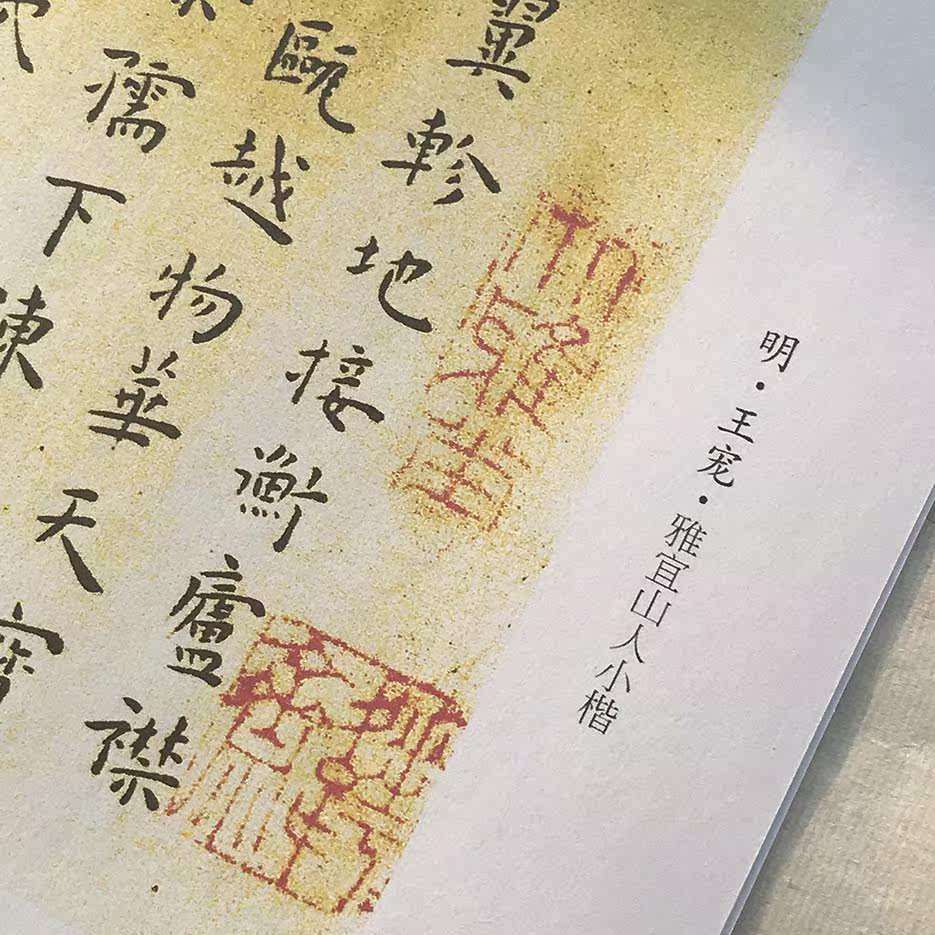 明·王宠·雅宜山人小楷
翼軫地接衡廬襟
甌越物華天寶
孺下陳